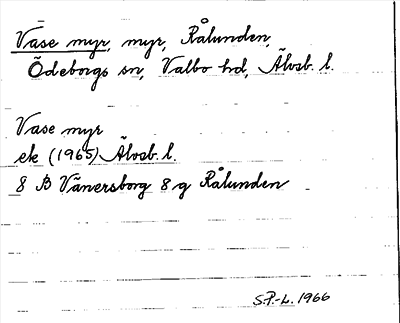 Vase myr, myr, Rålunden,
Ödeborgs sn, Valbo hd, Älvsb. l.
Vase myr
ek (1965) Älvsb. l.
8 B Vänersborg 8 g Rålunden
S.P.-L. 1966